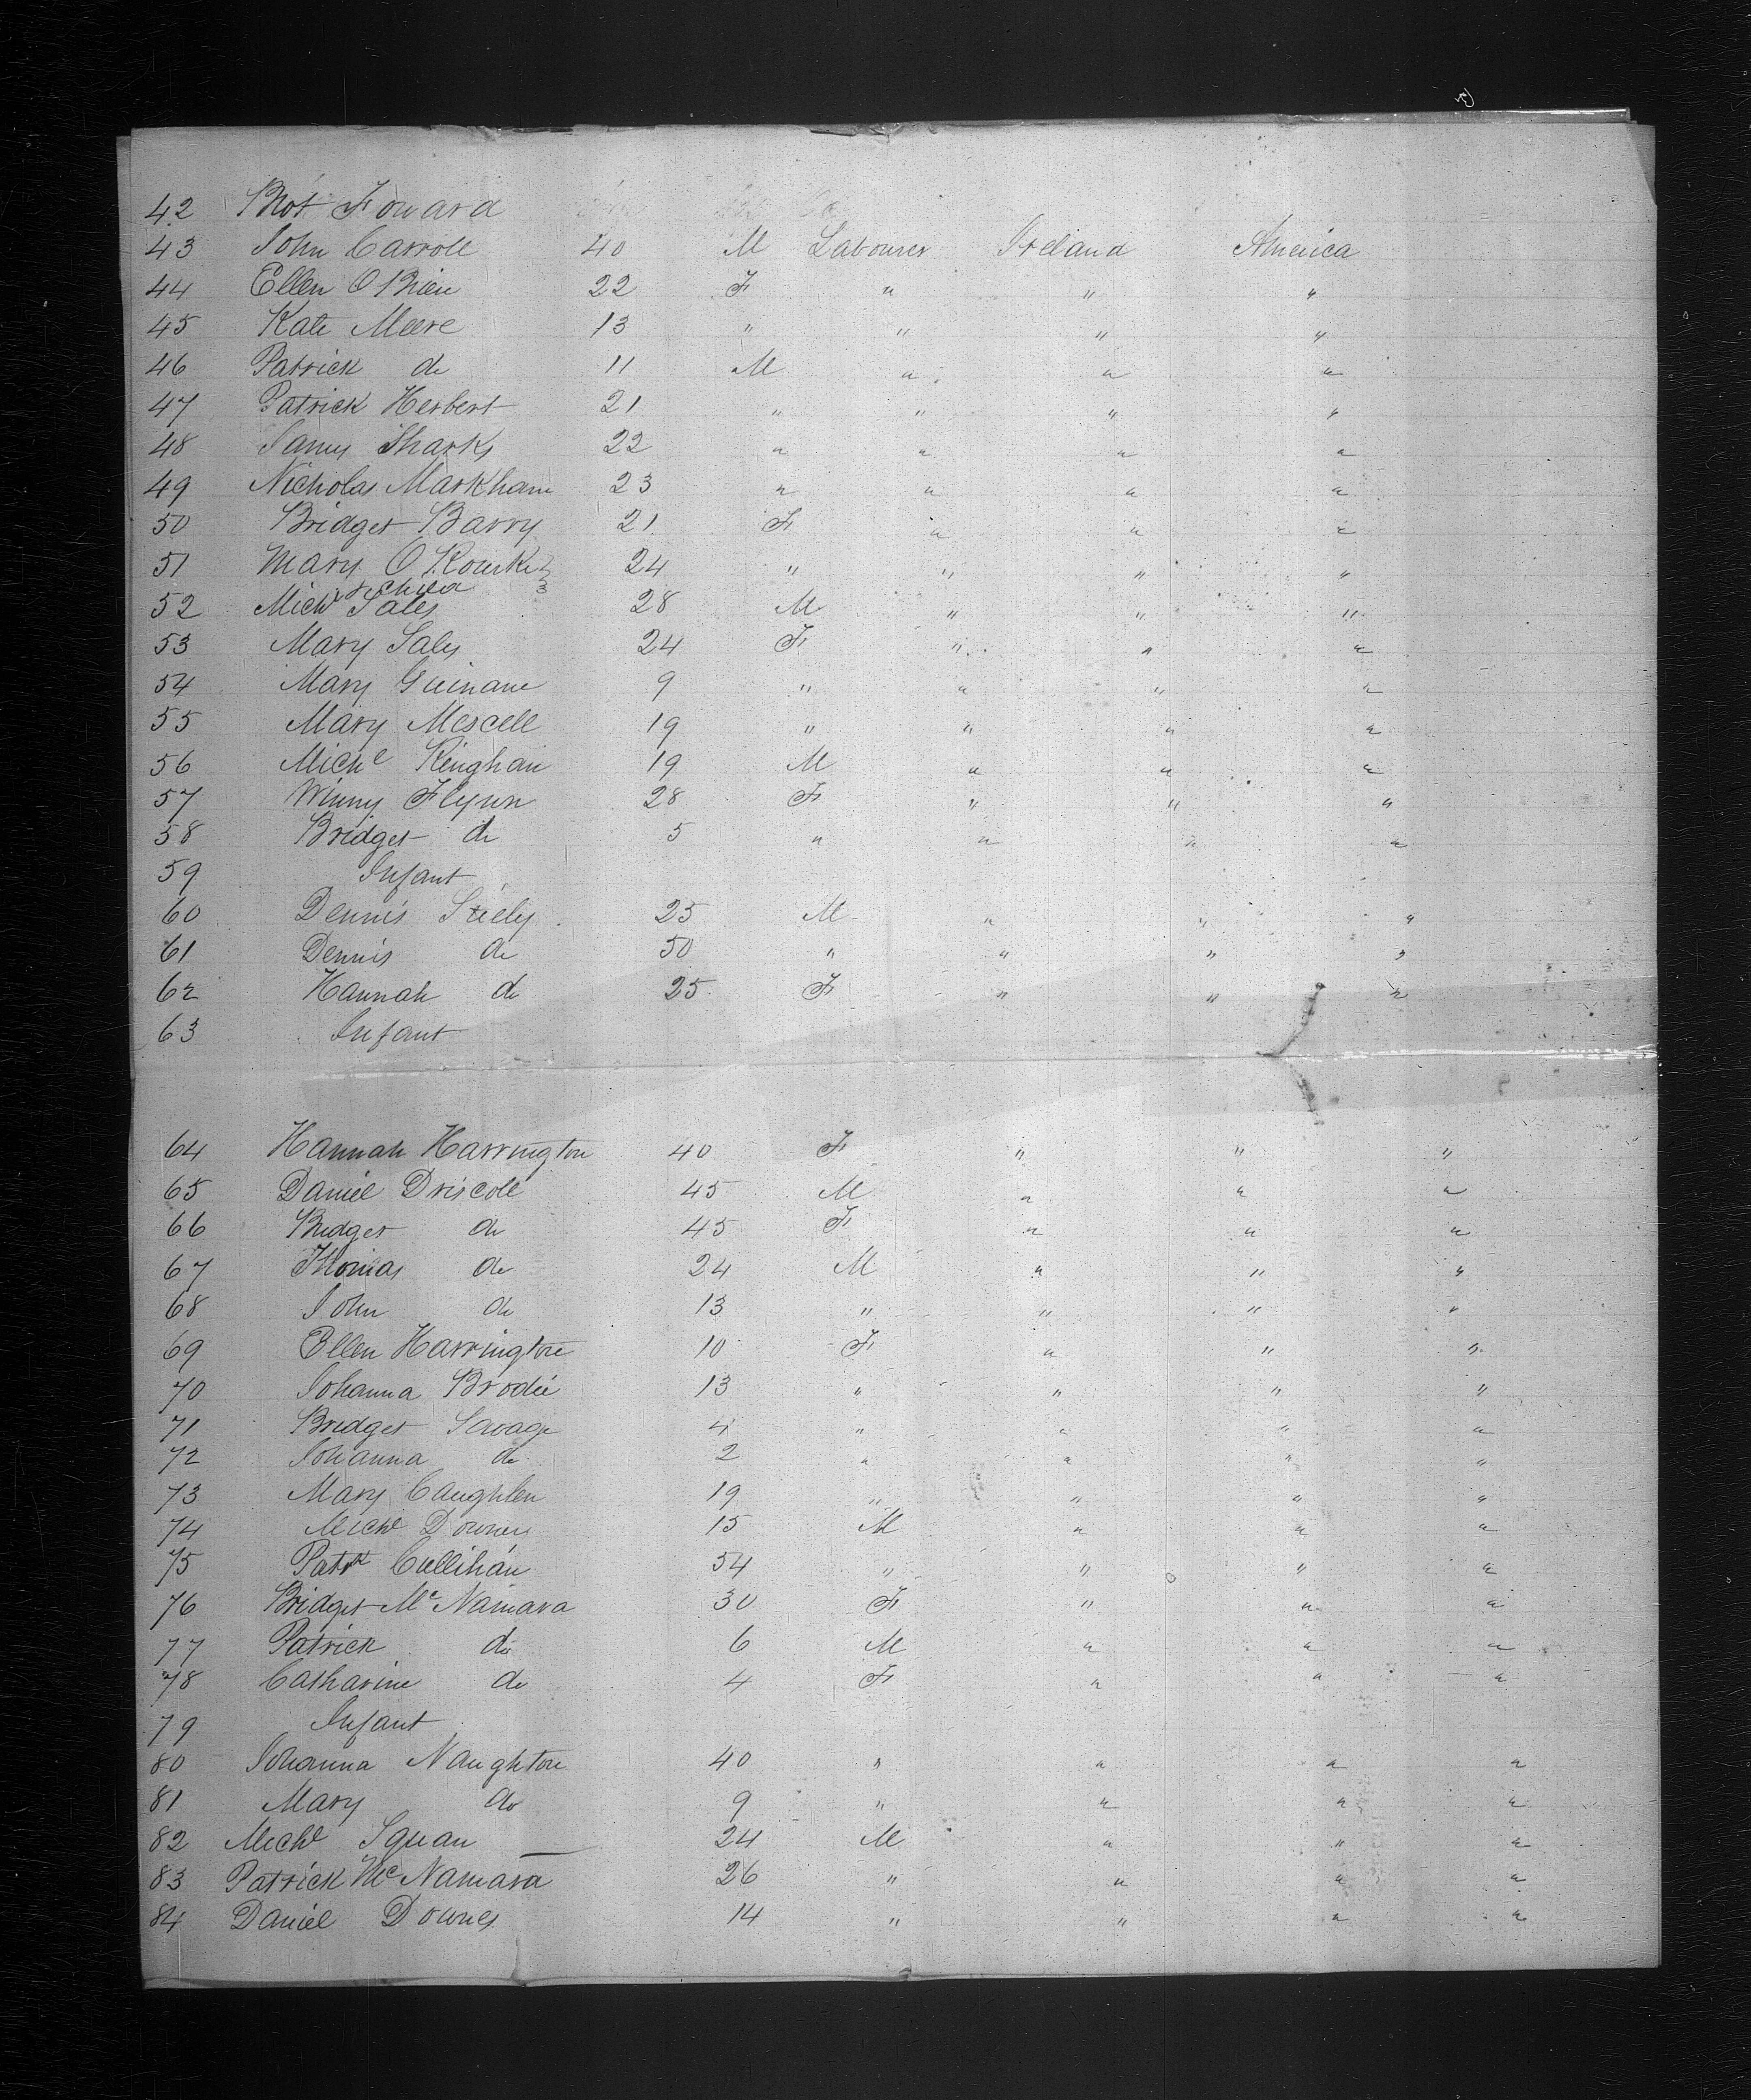 42 Brot Forward
43 John Carroll 40 M Labourer Ireland America
44 Ellen O'Brien 22 F " " "
45 Kate Meere 13 " " " "
46 Patrick do 11 M " " "
47 Patrick Herbert 21 " " " "
48 James Sharks 22 " " " "
49 Nicholas Markham 23 " " " "
50 Bridget Barry 21 F " " "
51 Mary O'Rourke 24 " " " "
& Child
52 Michl Sales 28 M " " "
53 Mary Sales 24 F " " "
54 Mary Guinane 9 " " " "
55 Mary Mescell 19 " " " "
56 Michl Kinghan 19 M " " "
57 Winny Flynn 28 F " " "
58 Bridget do 5 " " " "
59 Infant
60 Dennis 25 M " " "
61 Dennis do 50 " " " "
62 Hannah do 25 F " " "
63 Infant
64 Hannah Harrington 40 F " " "
65 Daniel Driscoll 45 M " " "
66 Bridget do 45 F " " "
67 Thomas do 24 M " " "
68 John do 13 " " " "
69 Ellen Harrington 10 F " " "
70 Johanna Brodie 13 " " " "
71 Bridget Savage 4 " " " "
72 Johanna do 2 " " " "
73 Mary Caughlen 19 " " " "
74 Michl Downes 15 M " " "
75 Patk Cullihan 54 " " " "
76 Bridget McNamara 30 F " " "
77 Patrick do 6 M " " "
78 Catharine do 4 F " " "
79 Infant
80 Johanna Naughton 40 " " " "
81 Mary do 9 " " " "
82 Michl 24 M " " "
83 Patrick McNamara 26 " " " "
84 Daniel Downes 14 " " " "